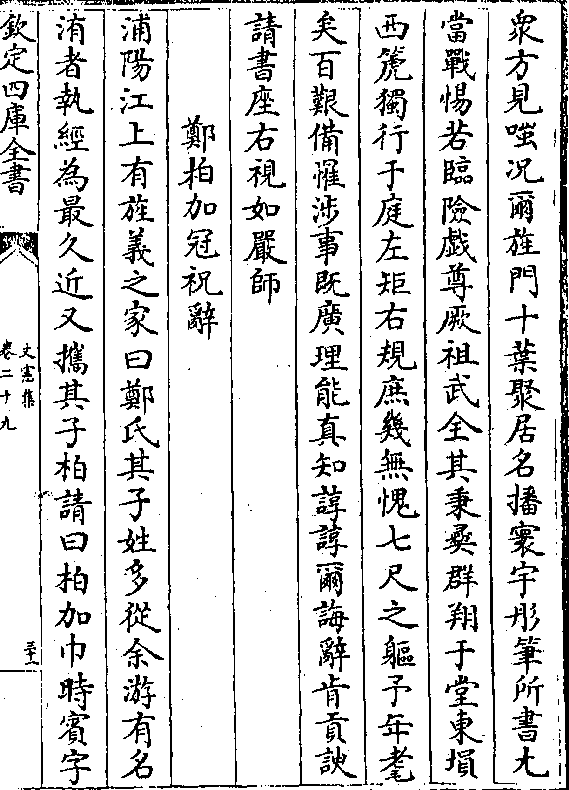 衆方見嗤况爾旌門十葉聚居名播寰宇彤筆所書尢
當戰惕若臨險戯尊厥祖武全其秉彞群翔于堂東塤
西篪獨行于庭左矩右規庶幾無愧七尺之軀予年耄
矣百艱備罹涉事既廣理能真知諄諄爾誨辭肯貢諛
請書座右視如嚴師
鄭柏加冠祝辭
浦陽江上有旌義之家曰鄭氏其子姓多從余游有名
洧者執經為最久近又攜其子柏請曰柏加巾時賓字
欽定四庫全書
文憲集
卷二十九
三十二